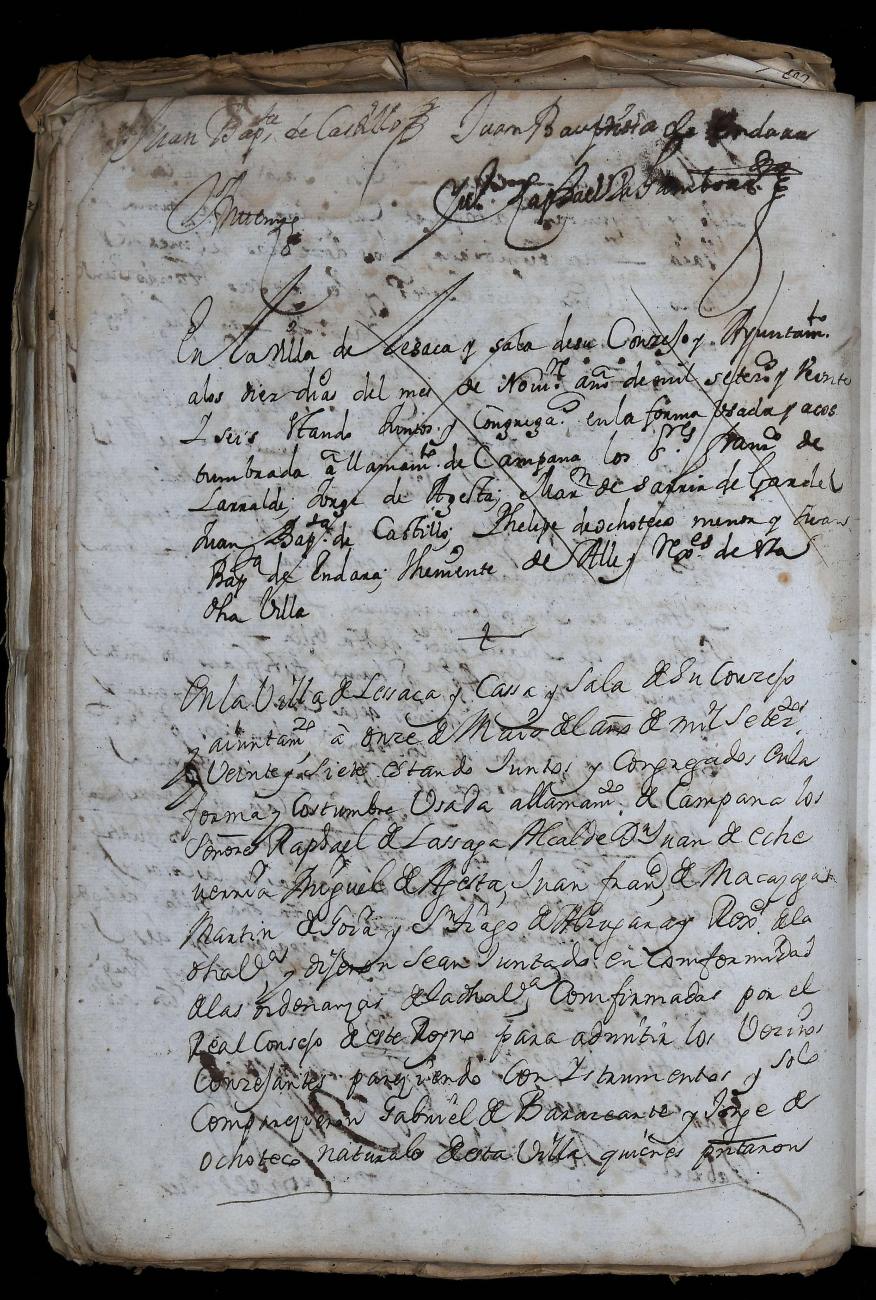 Juan Bap.ta de Castillo Juan Bauptista de Endara
Raphael de
En la Villa de Lesaca y sala desu Conzejo y Ayuntam.to
alos diez dias del mes de Nov.e año de mil setez.s y Veinte
y seis stando Juntos y Congregad.s en la forma Usada y acos
tumbrada â llamam.to de Campana los S.res Fran.co de
Larralde, Jorge de Agesta, Mar.n de Sarria de Gardel
Juan Bap.ta de Castillo, Phelipe de ochoteco menor y Juan
Bap.ta de Endara, theniente de Alle y Rex.es de sta
dha Villa
En la Villa de Lessaca y Cassa y Sala de Su Conzejo
y aiuntam.to â onze de Maio del año de mil setez.s
y Veinte y Siete estando Juntos y Congregados enla
forma y Costumbre Usada allamam.to de Campana los
Señores Raphael de Lassaga Alcalde D.n Juan de eche
uerria Miguel de Agesta, Juan fran.co de Macazaga
Martin de Goia y S.ntiago de y Rex.s dela
dha V.a y dijeron Sean Juntado en Comformidad
delas ordenanzas dela dha V.a Comfirmadas por el
Real Consejo de este Reyno para admitir los Vezinos
Conzejantes parquiendo Con Ystrumentos y solo
Comparezieron Gabriel de y Jorge de
ochoteco naturals desta Villa quienes pntaron